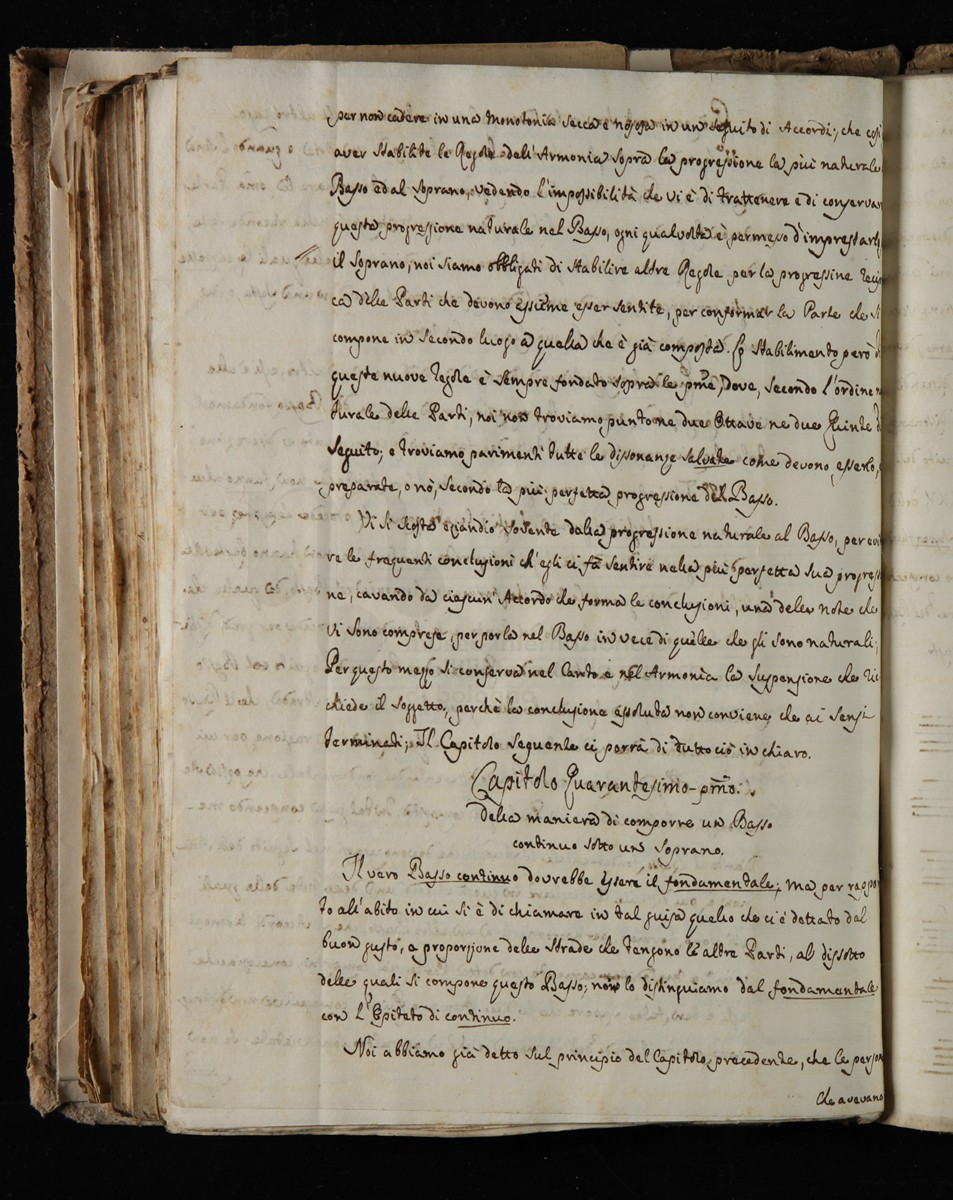 per non cadere in una Monotonia secca e nojosa in un seguito di Accordi; che
aver stabilite le Regole dell'Armonia sopra la progressione la più naturale
Basso ed al Soprano, vedendo l'impossibilità che vi è di trattenere e di conservar
questa progressione naturale nel Basso, ogni qualvolta è permesso d'imprestarla
il Soprano; noi siamo obbligati di stabilire altre Regole per la progressine
ca delle Parti che devono essieme esser sentite, per conformar la Parte che si
compone in secondo luogo a quella che è già composta. Lo Stabilimento però di
queste nuove regole è sempre fondato sopra le pme, dove, secondo l'ordine na
turale delle Parti, noi non troviamo punto ne due Ottave ne due Quinte di
seguito; e troviamo parimenti tutte le dissonanze salvate come devono esserlo,
preparate, o nò, secondo la più perfetta progressione del Basso.
Vi si scosta eziandio sovente dalla progressione naturale al Basso, per evi
re le frequenti conclusioni ch'egli ci fa sentire nella più perfetta sua progress
ne, cavando da ciascun'Accordo che forma le conclusioni, una delle note che
vi sono comprese, per porla nel Basso in vece di quelle che gli sono naturali;
Per questo mezzo si conserva nel Canto e nel Armonia la suspensione che ric
chiede il soggetto, perchè la conclusione assoluta non conviene che ai sensi
terminati; Il Capitolo seguente ci porrà di tutto ciò in chiaro.
Capitolo Quarantesimo-prmo.
Della maniera di comporre un Basso
continuo sotto un Soprano.
Il vero Basso continuo dovrebbe essere il fondamentale; ma per rappor
to all'abito in cui si è di chiamare in tal guisa quello che ci è dettato dal
buon gusto, a proporzione delle strade che tengono le altre Parti, al dissotto
delle quali si compone questo Basso; noi lo distinguiamo dal fondamentale
con l'Epiteto di continuo.
Noi abbiamo già detto sul principio del Capitolo precedente, che le person
che avevano